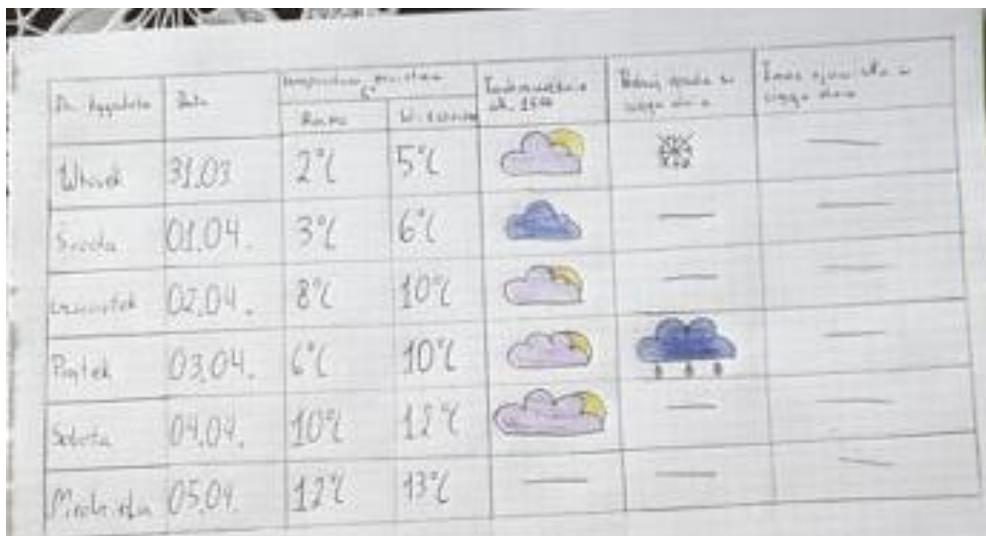 Dni tygodnia
Data
Temperatura powietrza
C°
Rano
Zachmurzenie
ok. 15⁰⁰
Rodzaj opadu w
ciągu dnia
Inne zjawiska w
ciągu dnia
Wtorek 31.03 2°C 5°C
Środa 01.04. 3°C 6°C
czwartek 02.04. 8°C 10°C
Piątek 03.04. 6°C 10°C
Sobota 04.04. 10°C 12°C
Niedziela 05.04. 12°C 13°C